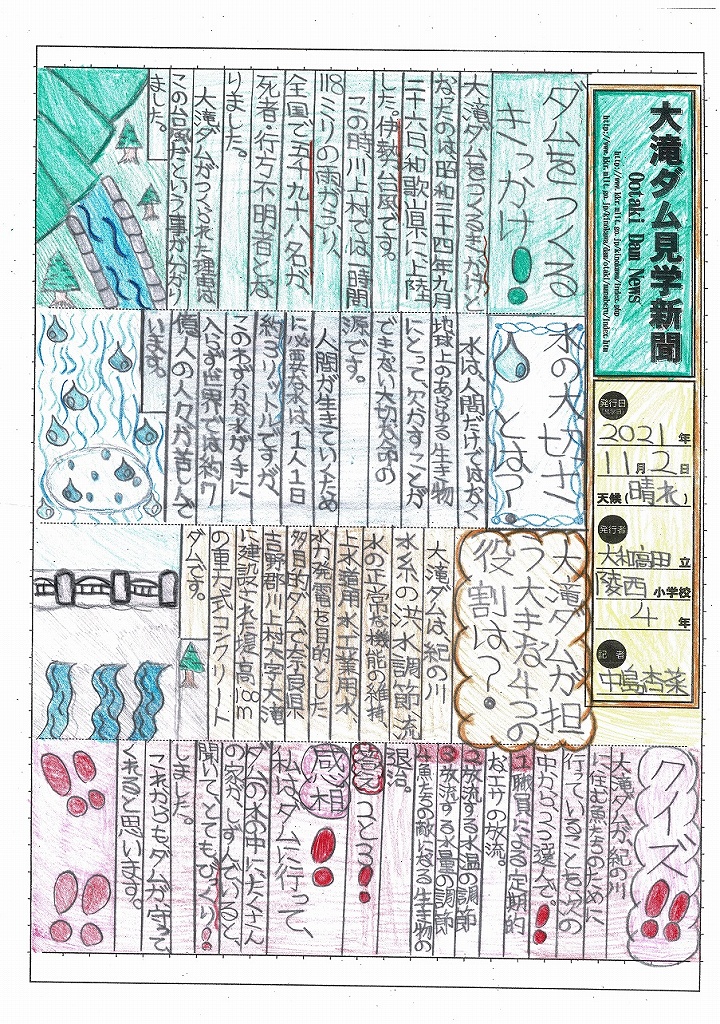 大滝ダム見学新聞
Ootaki Dam News
発行日
2021年
11月2日
天候(晴れ)
発行者
大和高田立
陵西小学校
4年
記者
中島杏菜
ダムをつくる
きっかけ!
大滝ダムをつくるきっかけと
なったのは、昭和三十四年九月
二十六日、和歌山県に、上陸
した。伊勢台風です。
この時川上村では一時間
118ミリの雨がふり、
全国で五千九十八名が、
死者・行方不明者とな
りました。
大滝ダムがつくられた理由は
この台風だという事が分かり
ました。
水の大切さ
とは?
水は人間だけではなく
地球上のあらゆる生き物
にとって、欠かすことが
できない大切な命の
源です。
人間が生きていくため
に必要な水は、1人1日
約3リットルですが、
このわずかな水が手に
入らず世界では約7
億人の人々が苦しんで
います。
大滝ダムが担
う大きな4つの
役割は?
大滝ダムは、紀の川
水系の洪水調節、流
水の正常な機能の維持、
上水道用水、工業用水、
水力発電を目的とした
多目的ダムで奈良県
吉野郡川上村大字大滝
に建設された堤高100m
の重力式コンクリート
ダムです。
クイズ!!
大滝ダムが、紀の川
に住む魚たちのために
行っていることを次の
中から2つ選んで。!
1職員による定期的
なエサの放流。
2放流する水温の調節
3放流する水量の調節
4魚たちの敵になる生き物の
退治。
答え2と3!
感想!
私はダムに行って、
ダムの水の中に、たくさん
の家が、しずんでいると、
聞いてとてもびっくり!
しました。
これからもダムが守って
くれると思います。